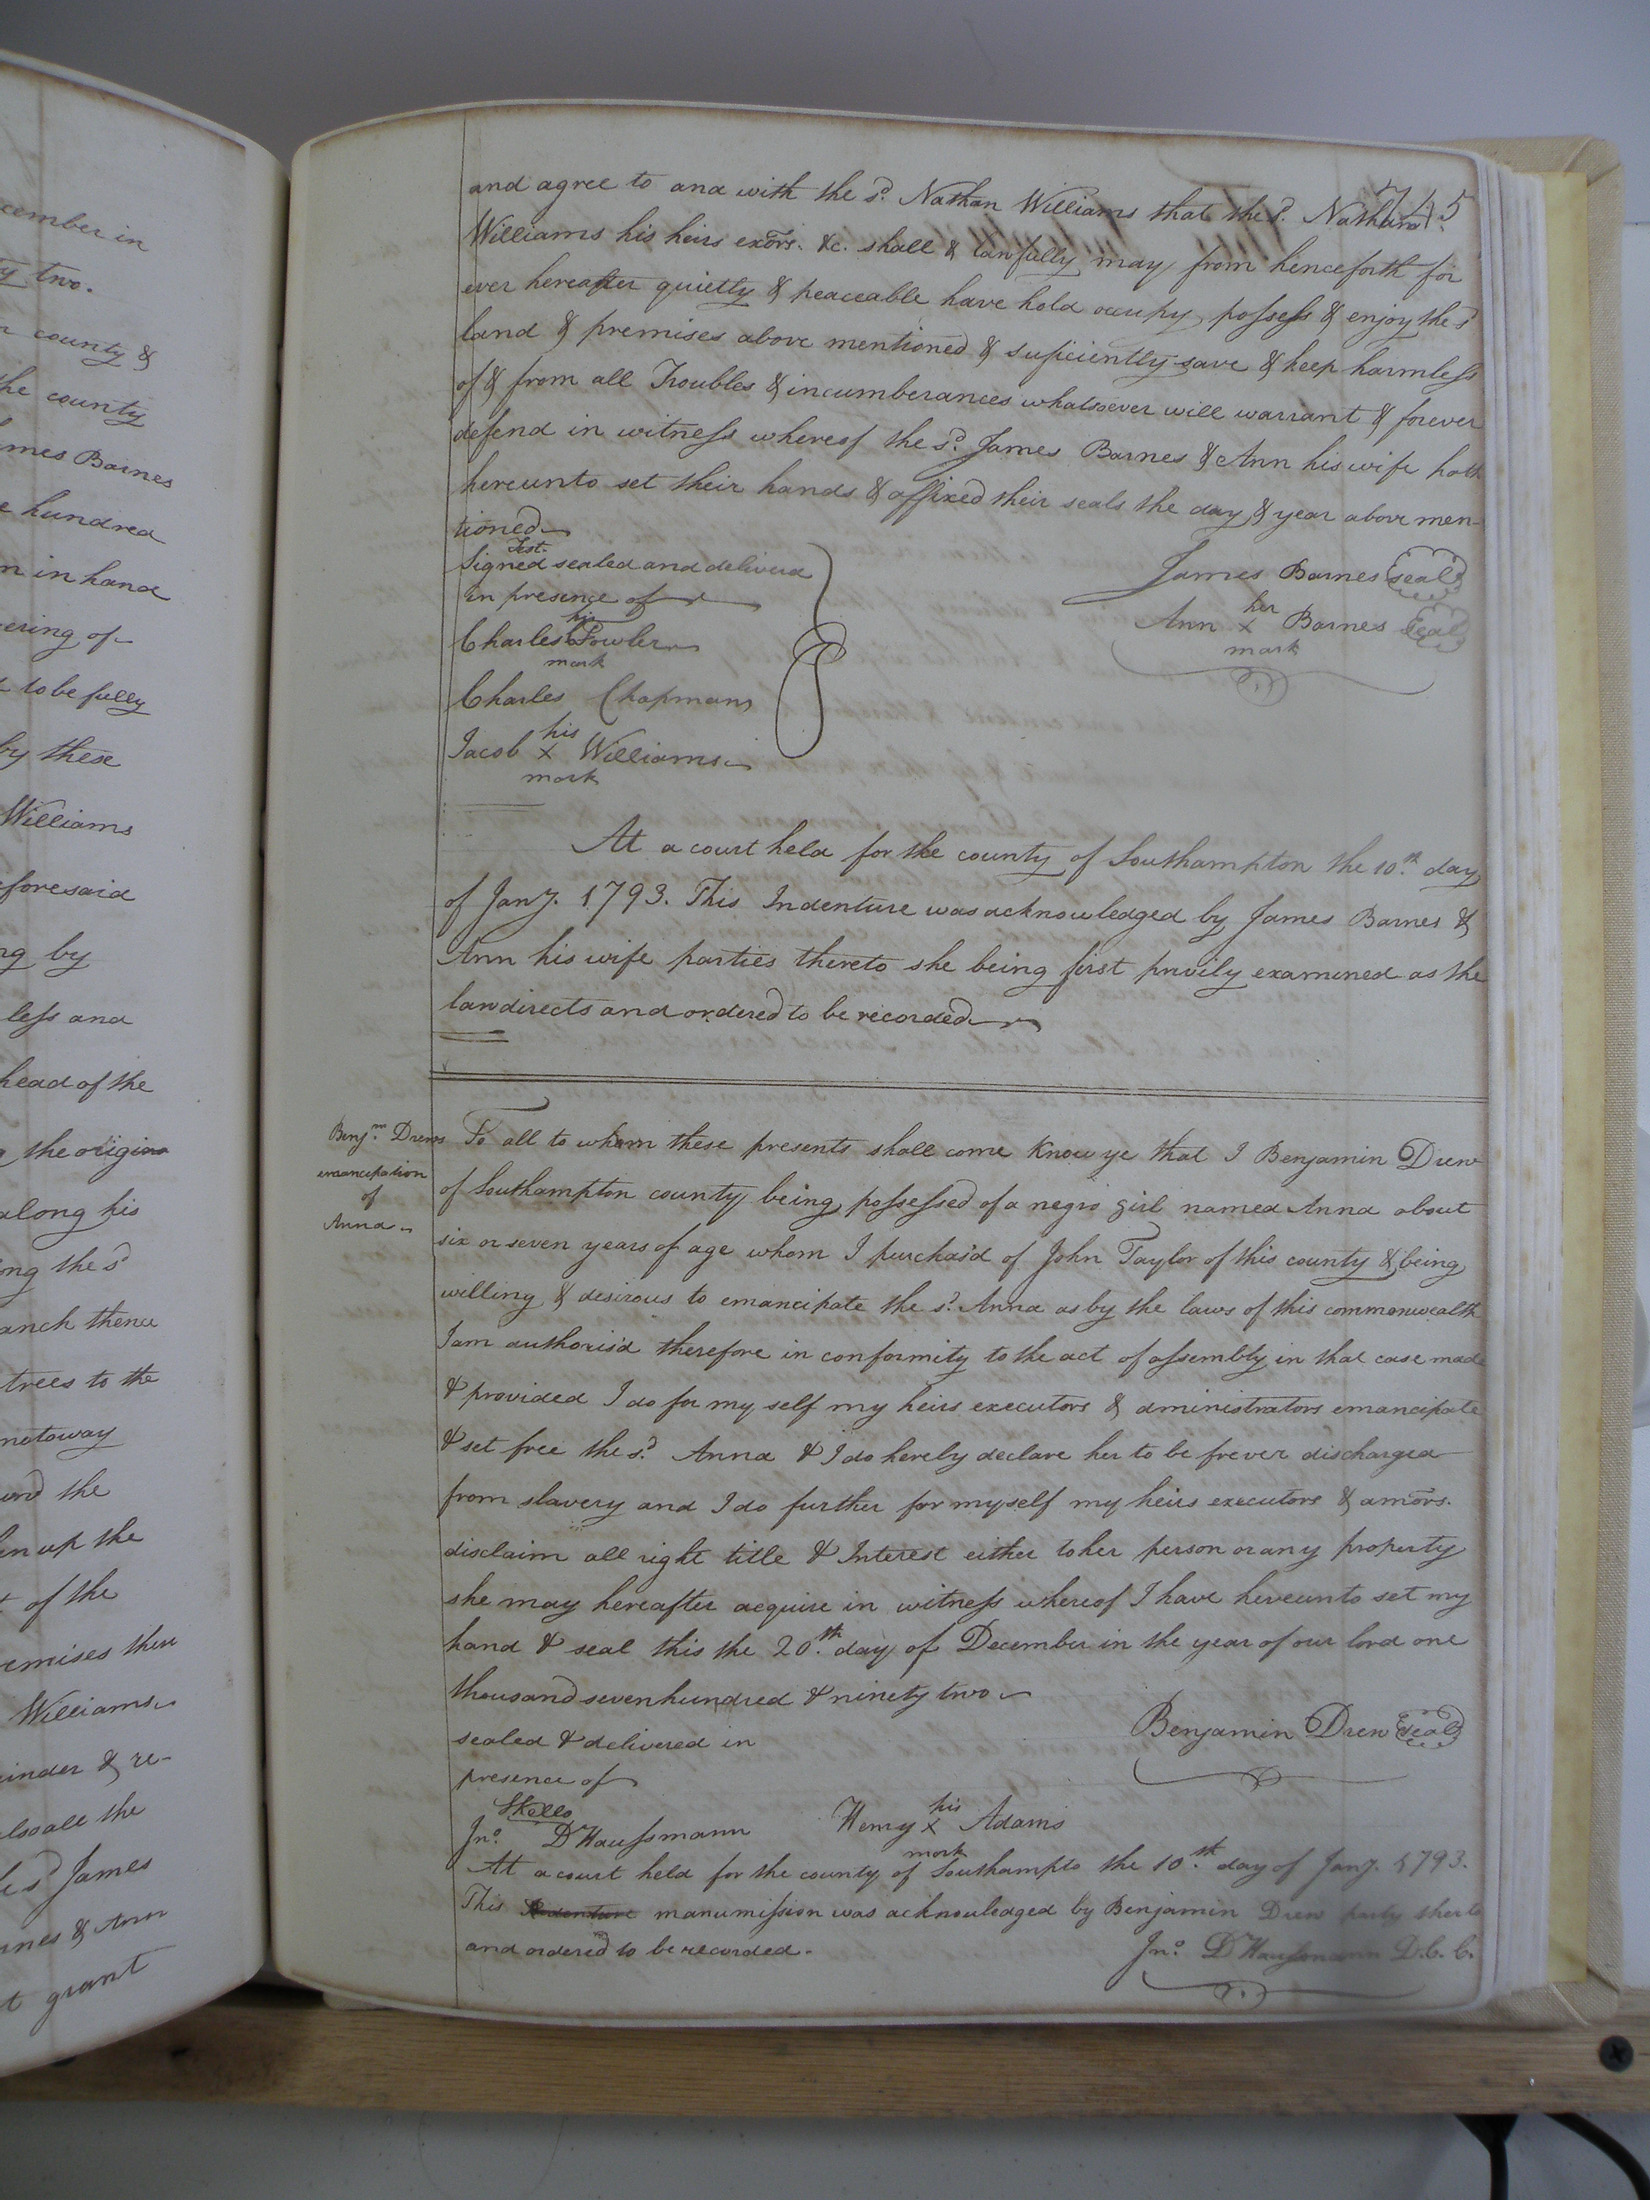 cember in
ty two.
county &
the county
mes Barnes
e hundred
n in hand
ering of
to be fully
by these
Williams
foresaid
ng by
less and
head of the
the origina
along his
ong the sd
anch thence
trees to the
nottoway
and the
en up the
of the
emises there
Williams
inder & re-
also all the
James
rnes & Ann
t grant
745
and agree to and with the sd. Nathan Williams that the sd. Nathan
Williams his heirs exors. &c. shall & lawfully may from henceforth for
ever hereafter quietly & peaceable have hold occupy possess & enjoy the sd
land & premises above mentioned & suficiently save & keep harmless
of & from all Troubles & incumberances whatsoever will warrant & forever
defend in witness whereof the sd. James Barnes & Ann his wife hath
hereunto set their hands & affixed their seals the day & year above men-
tioned
Test.
Signed sealed and deliverd
in presence of
Charles his Fowler
mark
Charles Chapman
Jacob his x Williams
mark
James Barnes seal
Ann her x Barnes Seal
mark
At a court held for the county of Southampton the 10th. day
of Jany. 1793. This Indenture was acknowledged by James Barnes &
Ann his wife parties thereto she being first privily examined as the
law directs and ordered to be recorded
Benjmn. Drews
emancipation
of
Anna
To all to whom these presents shall come Know ye that I Benjamin Drew
of Southampton county being possessed of a negro girl named Anna about
six or seven years of age whom I purchas'd of John Taylor of this county & being
willing & desirous to emancipate the sd. Anna as by the laws of this commonwealth
I am authoris'd therefore in conformity to the act of assembly in that case made
& provided I do for my self my heirs executors & aministrators emancipate
& set free the sd. Anna & I do hereby declare her to be frever discharged
from slavery and I do further for myself my heirs executors & amors.
disclaim all right title & Interest either to her person or any property
she may hereafter acquire in witness whereof I have hereunto set my
hand & seal this the 20th. day of December in the year of our lord one
thousand seven hundred & ninety two
sealed & delivered in
presence of
Benjamin Drew Seal
Skello
Jno. D Haussmann Henry his x Adams
mark
At a court held for the county of Southampto the 10th. day of Jany. 1793.
This Indenture manumission was acknowledged by Benjamin Drew party thereto
and ordered to be recorded.
Jno. D Haussmann D.C.C.